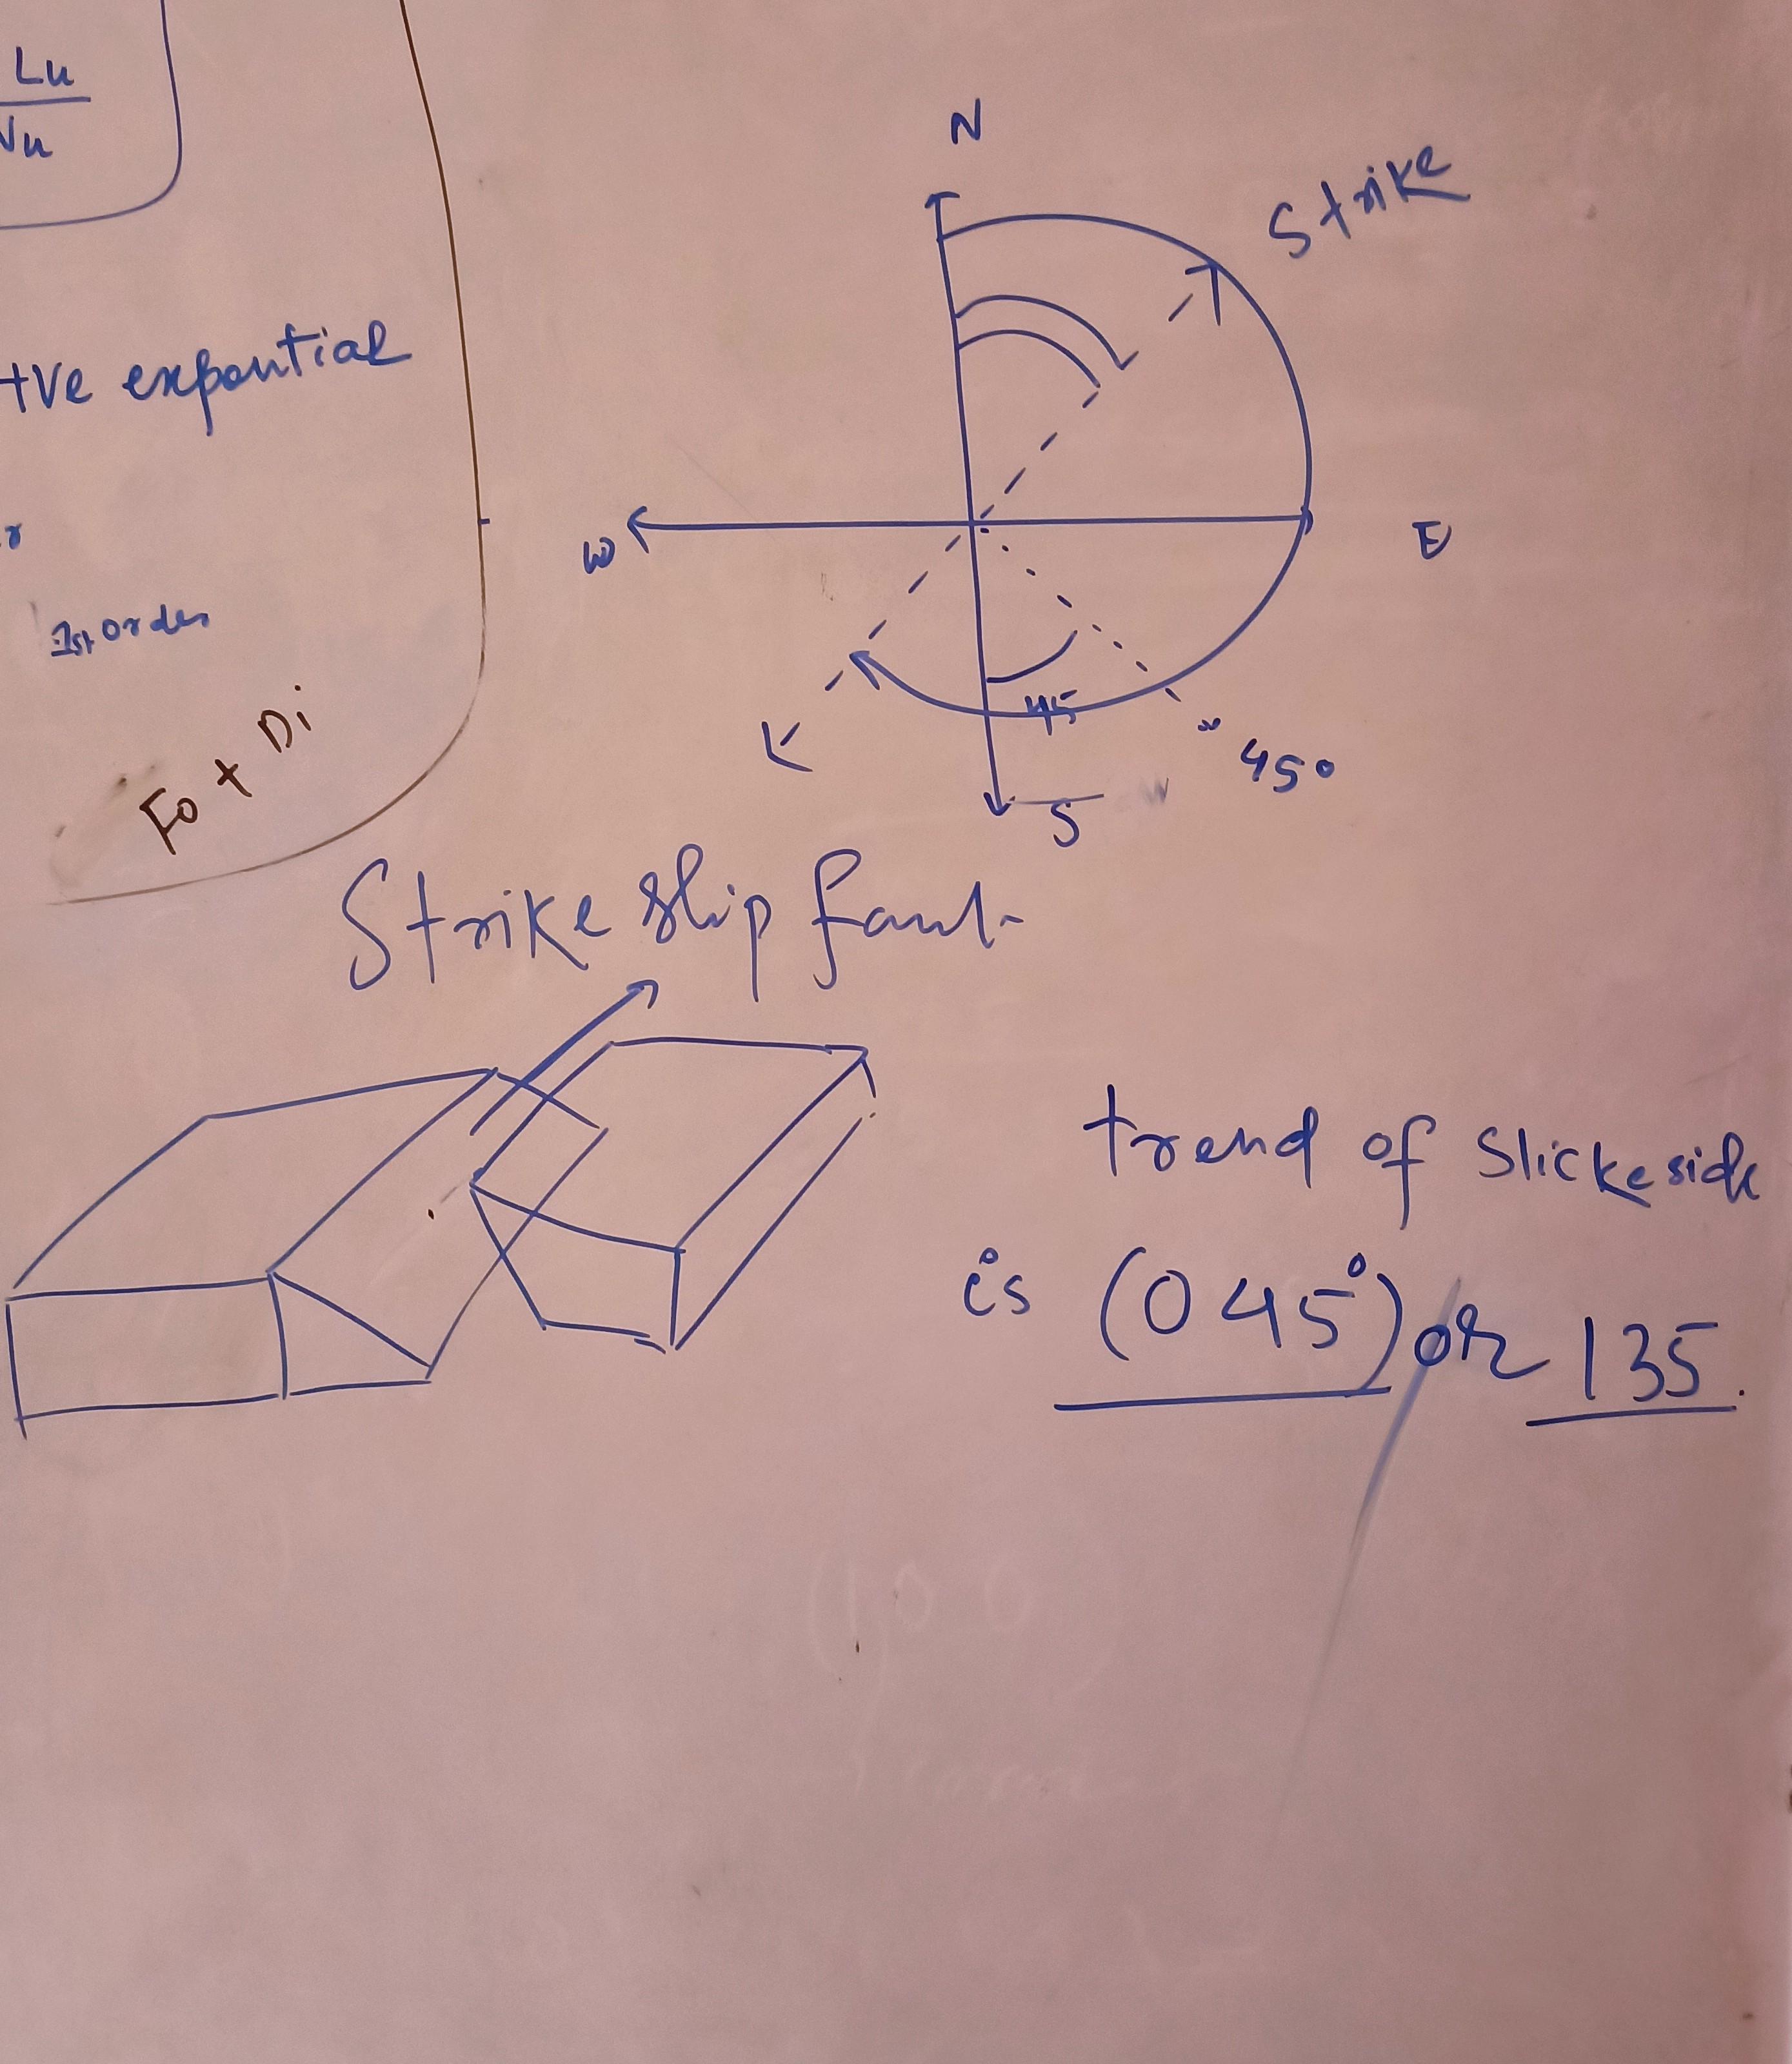 Lu
Vu
+ve expontial
1st order
Fo + Di
N
Strike
W
E
45
45°
S
Strike slip fault
trend of Slickeside
is (045°) or 135.